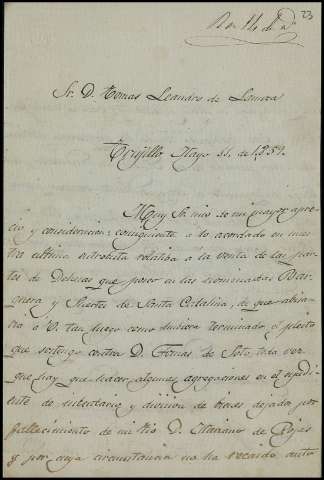 23
Sr. D. Tomas Leandro de
Trujillo Mayo 11. de 1,859.
Muy Sr. mio de mi mayor apre-
cio y consideracion: consiguiente a lo acordado en nues-
tra ultima entrebista relatiba a la venta de las par-
tes de Dehesas que poseo en las nominadas
y Suertes de Santa Catalina, de que abisa-
ria a V. tan luego como hubiera terminado el pleito
que sostengo contra D. Tomas de Soto, toda vez
que hay que hacer algunas agregaciones en el espedi-
ente de imbentario y division de bienes dejada por
fallecimiento de mi tio D. Mariano de Rojas
y por cuya circunstancia no ha recaido auto